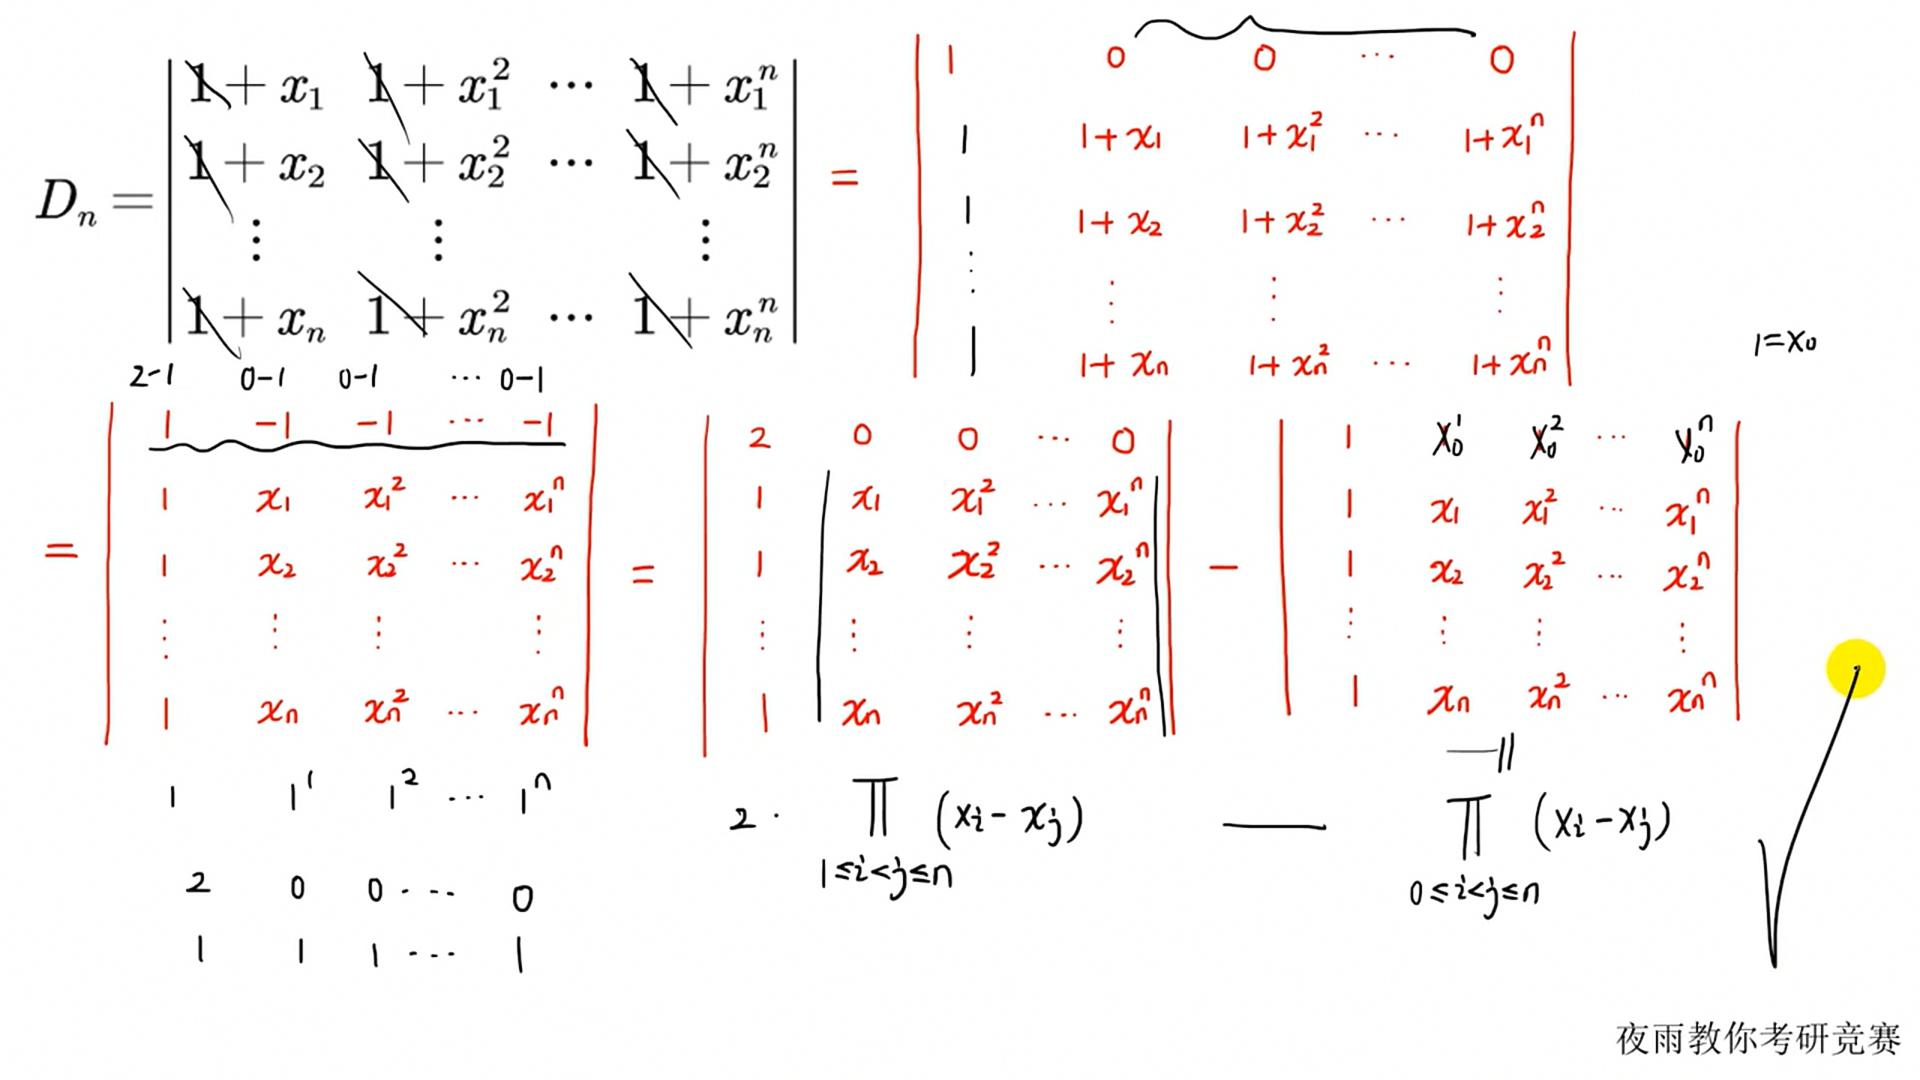 D_n = | 1+x_1 1+x_1^2 ⋯ 1+x_1^n |
| 1+x_2 1+x_2^2 ⋯ 1+x_2^n |
| ⋮ ⋮ ⋮ |
| 1+x_n 1+x_n^2 ⋯ 1+x_n^n |
= | 1 0 0 ⋯ 0 |
| 1 1+x_1 1+x_1^2 ⋯ 1+x_1^n |
| 1 1+x_2 1+x_2^2 ⋯ 1+x_2^n |
| ⋮ ⋮ ⋮ ⋮ |
| 1 1+x_n 1+x_n^2 ⋯ 1+x_n^n |
1=x_0
2-1 0-1 0-1 ⋯ 0-1
= | 1 -1 -1 ⋯ -1 |
| 1 x_1 x_1^2 ⋯ x_1^n |
| 1 x_2 x_2^2 ⋯ x_2^n |
| ⋮ ⋮ ⋮ ⋮ |
| 1 x_n x_n^2 ⋯ x_n^n |
= | 2 0 0 ⋯ 0 |
| 1 x_1 x_1^2 ⋯ x_1^n |
| 1 x_2 x_2^2 ⋯ x_2^n |
| ⋮ ⋮ ⋮ ⋮ |
| 1 x_n x_n^2 ⋯ x_n^n |
- | 1 x_0^1 x_0^2 ⋯ x_0^n |
| 1 x_1 x_1^2 ⋯ x_1^n |
| 1 x_2 x_2^2 ⋯ x_2^n |
| ⋮ ⋮ ⋮ ⋮ |
| 1 x_n x_n^2 ⋯ x_n^n |
1 1^1 1^2 ⋯ 1^n
2 0 0 ⋯ 0
1 1 1 ⋯ 1
2 · ∏ (x_i - x_j) — ∏ (x_i - x_j)
1≤i<j≤n 0≤i<j≤n
夜雨教你考研竞赛